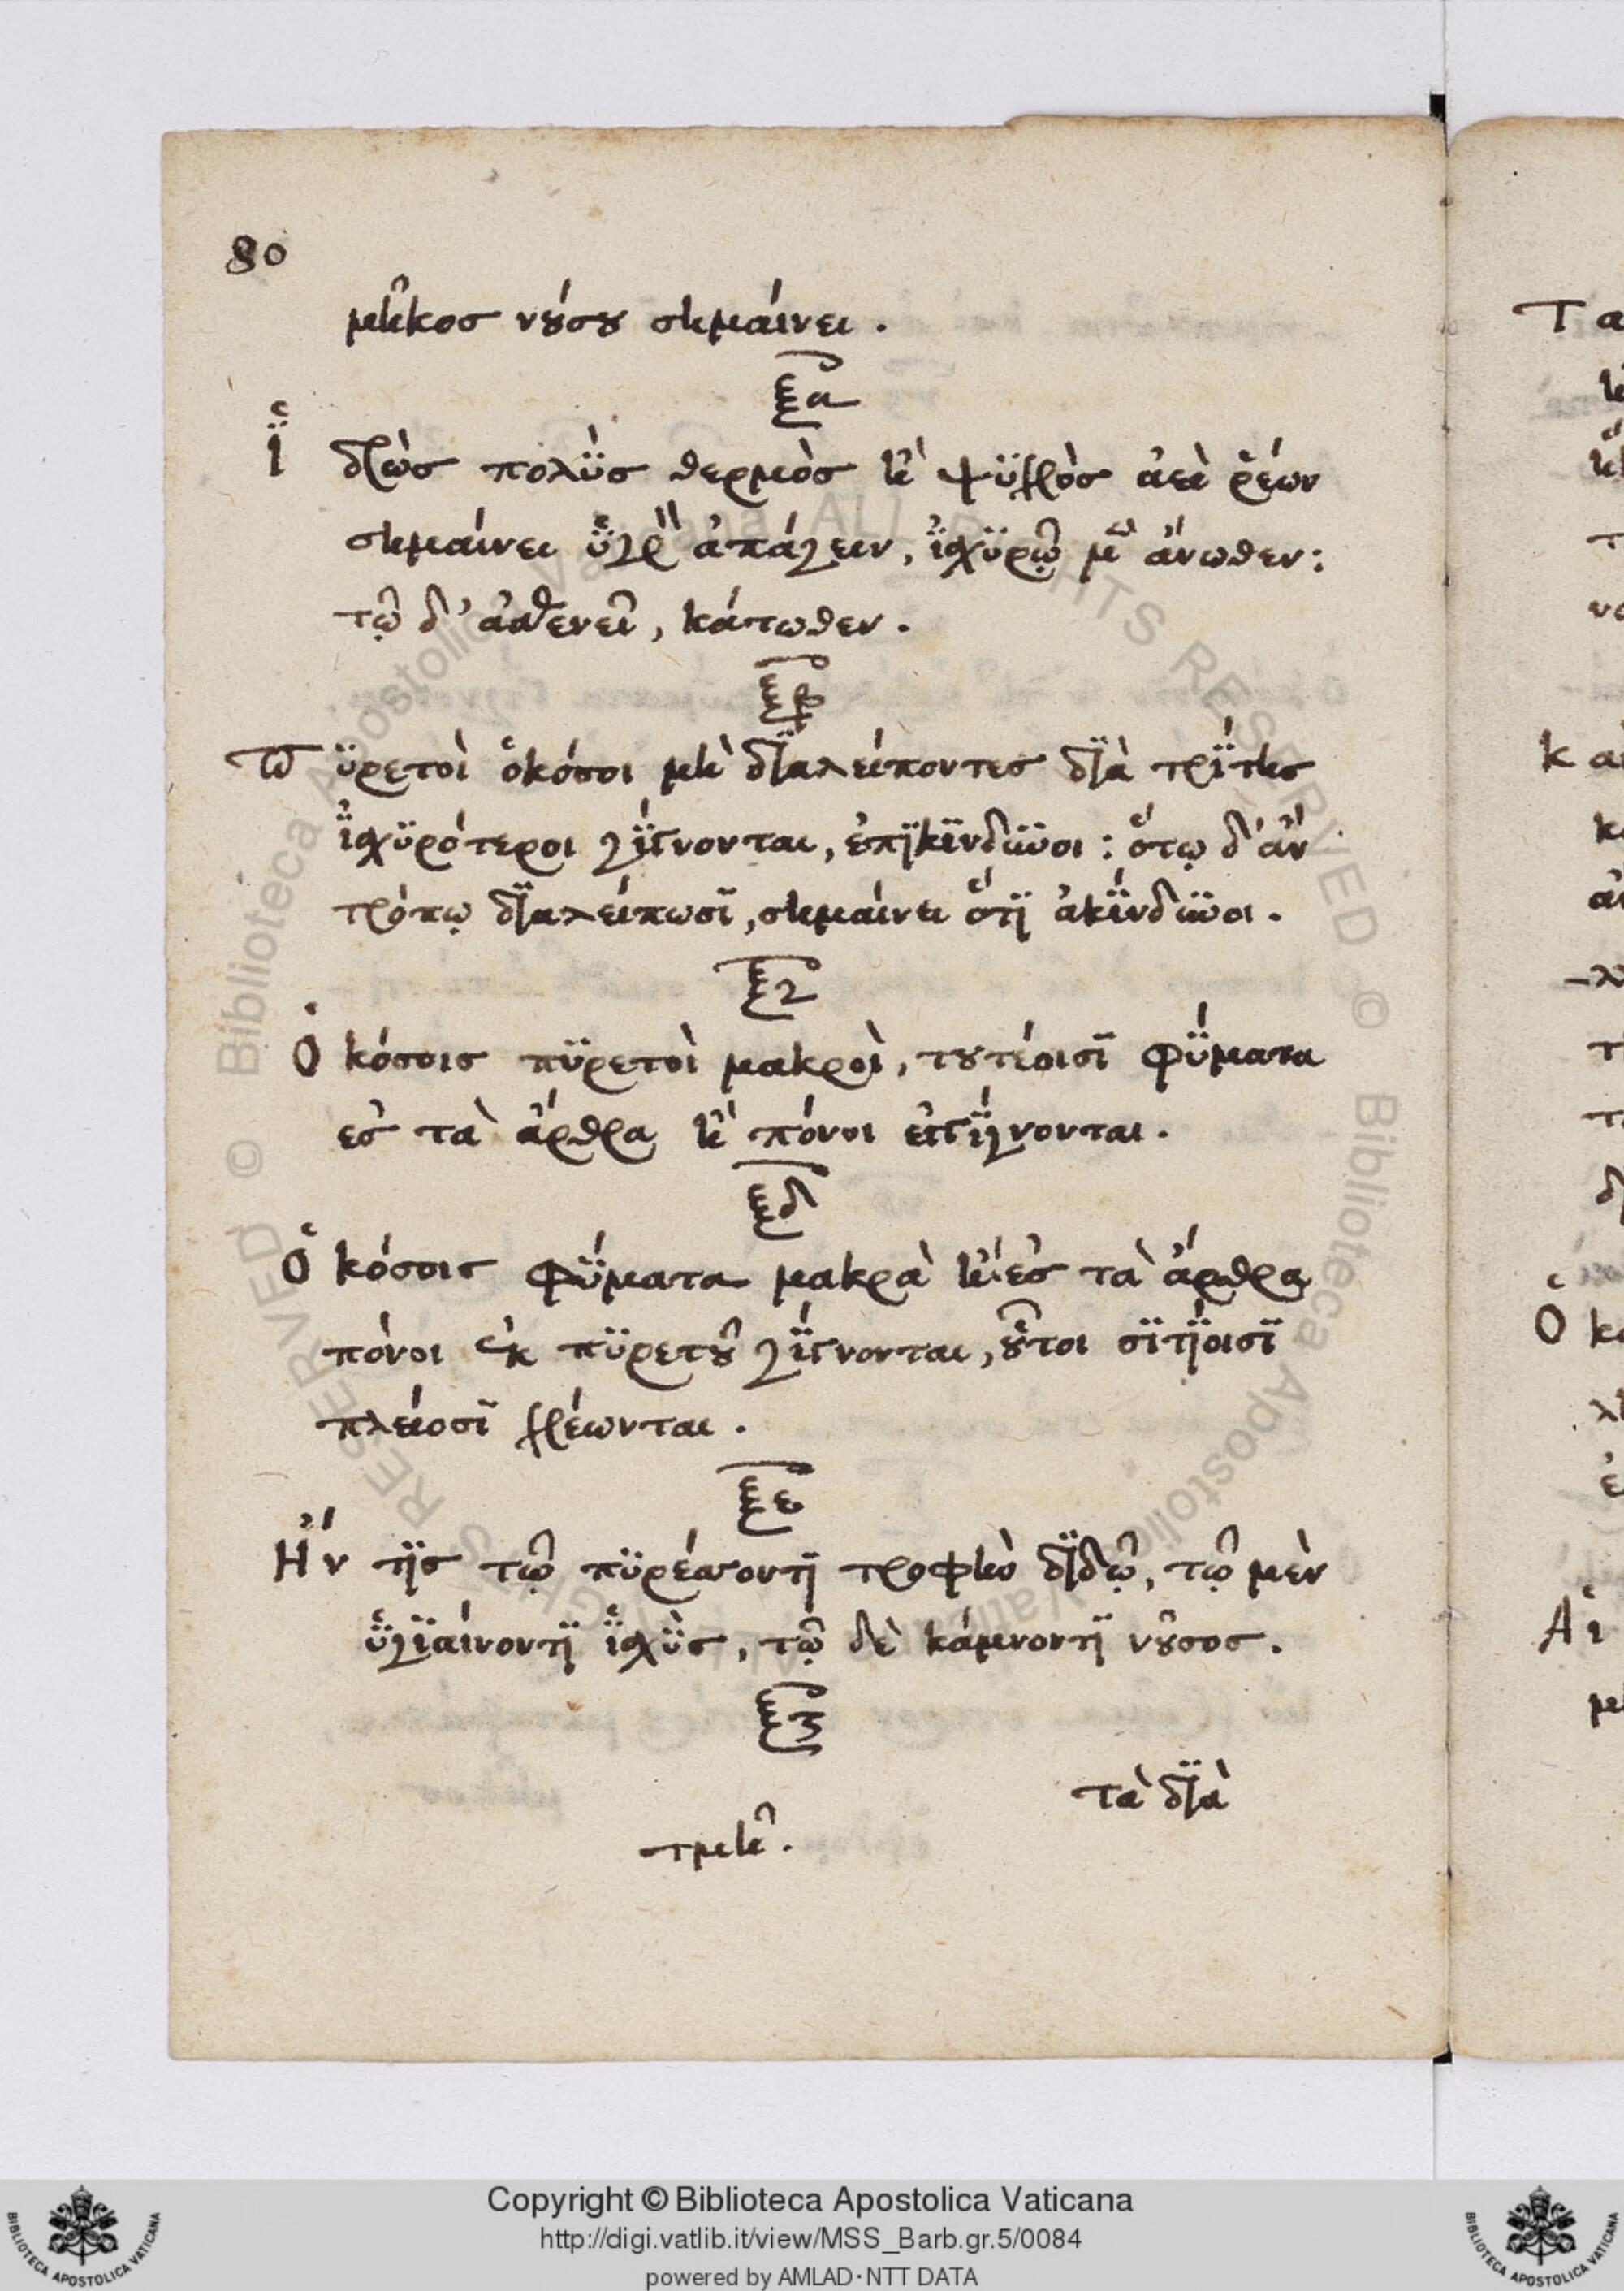 80
μῆκος νούσου σημαίνει.
ξα
Ἱ̈δρὼς πολῢς θερμὸς ἢ ψϋχρὸς ἀεὶ ῥέων
σημαίνει ϋ̔γρ̀ ἀπάγειν, ἰ̈σχϋρῷ μ̀ ἄνωθεν:
τῷ δ' ἀσθενεῖ, κάτωθεν.
ξβ
Πϋρετοὶ ὁκόσοι μὴ δϊαλείποντες δϊὰ τρΐτης
ἰ̈σχϋρότεροι γΐγνονται, ἐπϊκΐνδϋνοι: ὅτῳ δ' ἂν
τρόπῳ δϊαλείπωσϊ, σημαίνει ὅτϊ ἀκΐνδϋνοι.
ξγ
Ὁκόσοις πϋρετοὶ μακροὶ, τουτέοισϊ φΰματα
ἐς τὰ ἄρθρα ἢ πόνοι ἐγγΐγνονται.
ξδ
Ὁκόσοις φΰματα μακρὰ ἢ ἐς τὰ ἄρθρα
πόνοι ἐκ πϋρετοῦ γΐγνονται, οὗτοι σϊτΐοισϊ
πλείοσϊ χρέωνται.
ξε
Ἤν τϊς τῷ πϋρέσσοντϊ τροφὴν δϊδῷ, τῷ μὲν
ϋ̔γϊαίνοντϊ ἰ̈σχῢς, τῷ δὲ κάμνοντϊ νοῦσος.
ξϛ
τὰ δϊὰ
τμη.
Copyright © Biblioteca Apostolica Vaticana
http://digi.vatlib.it/view/MSS_Barb.gr.5/0084
powered by AMLAD·NTT DATA